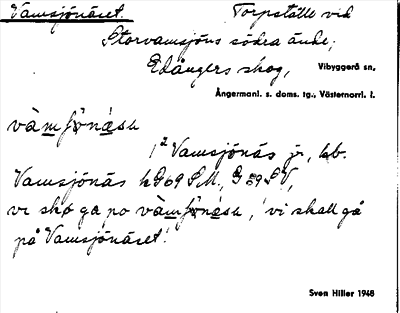 Vamsjönäset. Torpställe vid
Storvamsjöns södra ände;
Edångers skog, Vibyggerå sn,
Ångermanl. s. doms. tg., Västernorrl. l.
vàmʃö̀nä́sə
1ª Vamsjönäs jr, kb.
Vamsjönäs hG69 SM, G59SV,
vi skø ga po vàmʃönä́sə, 'vi skall gå
på Vamsjönäset'.
Sven Hiller 1948